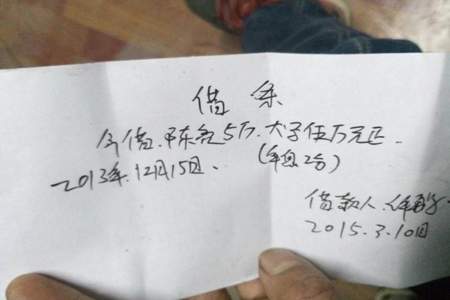 借条
今借、陈亮5万.大子伍万元正.
2013年.12月15日、(年息2分)
借款人.
2015.3.10日